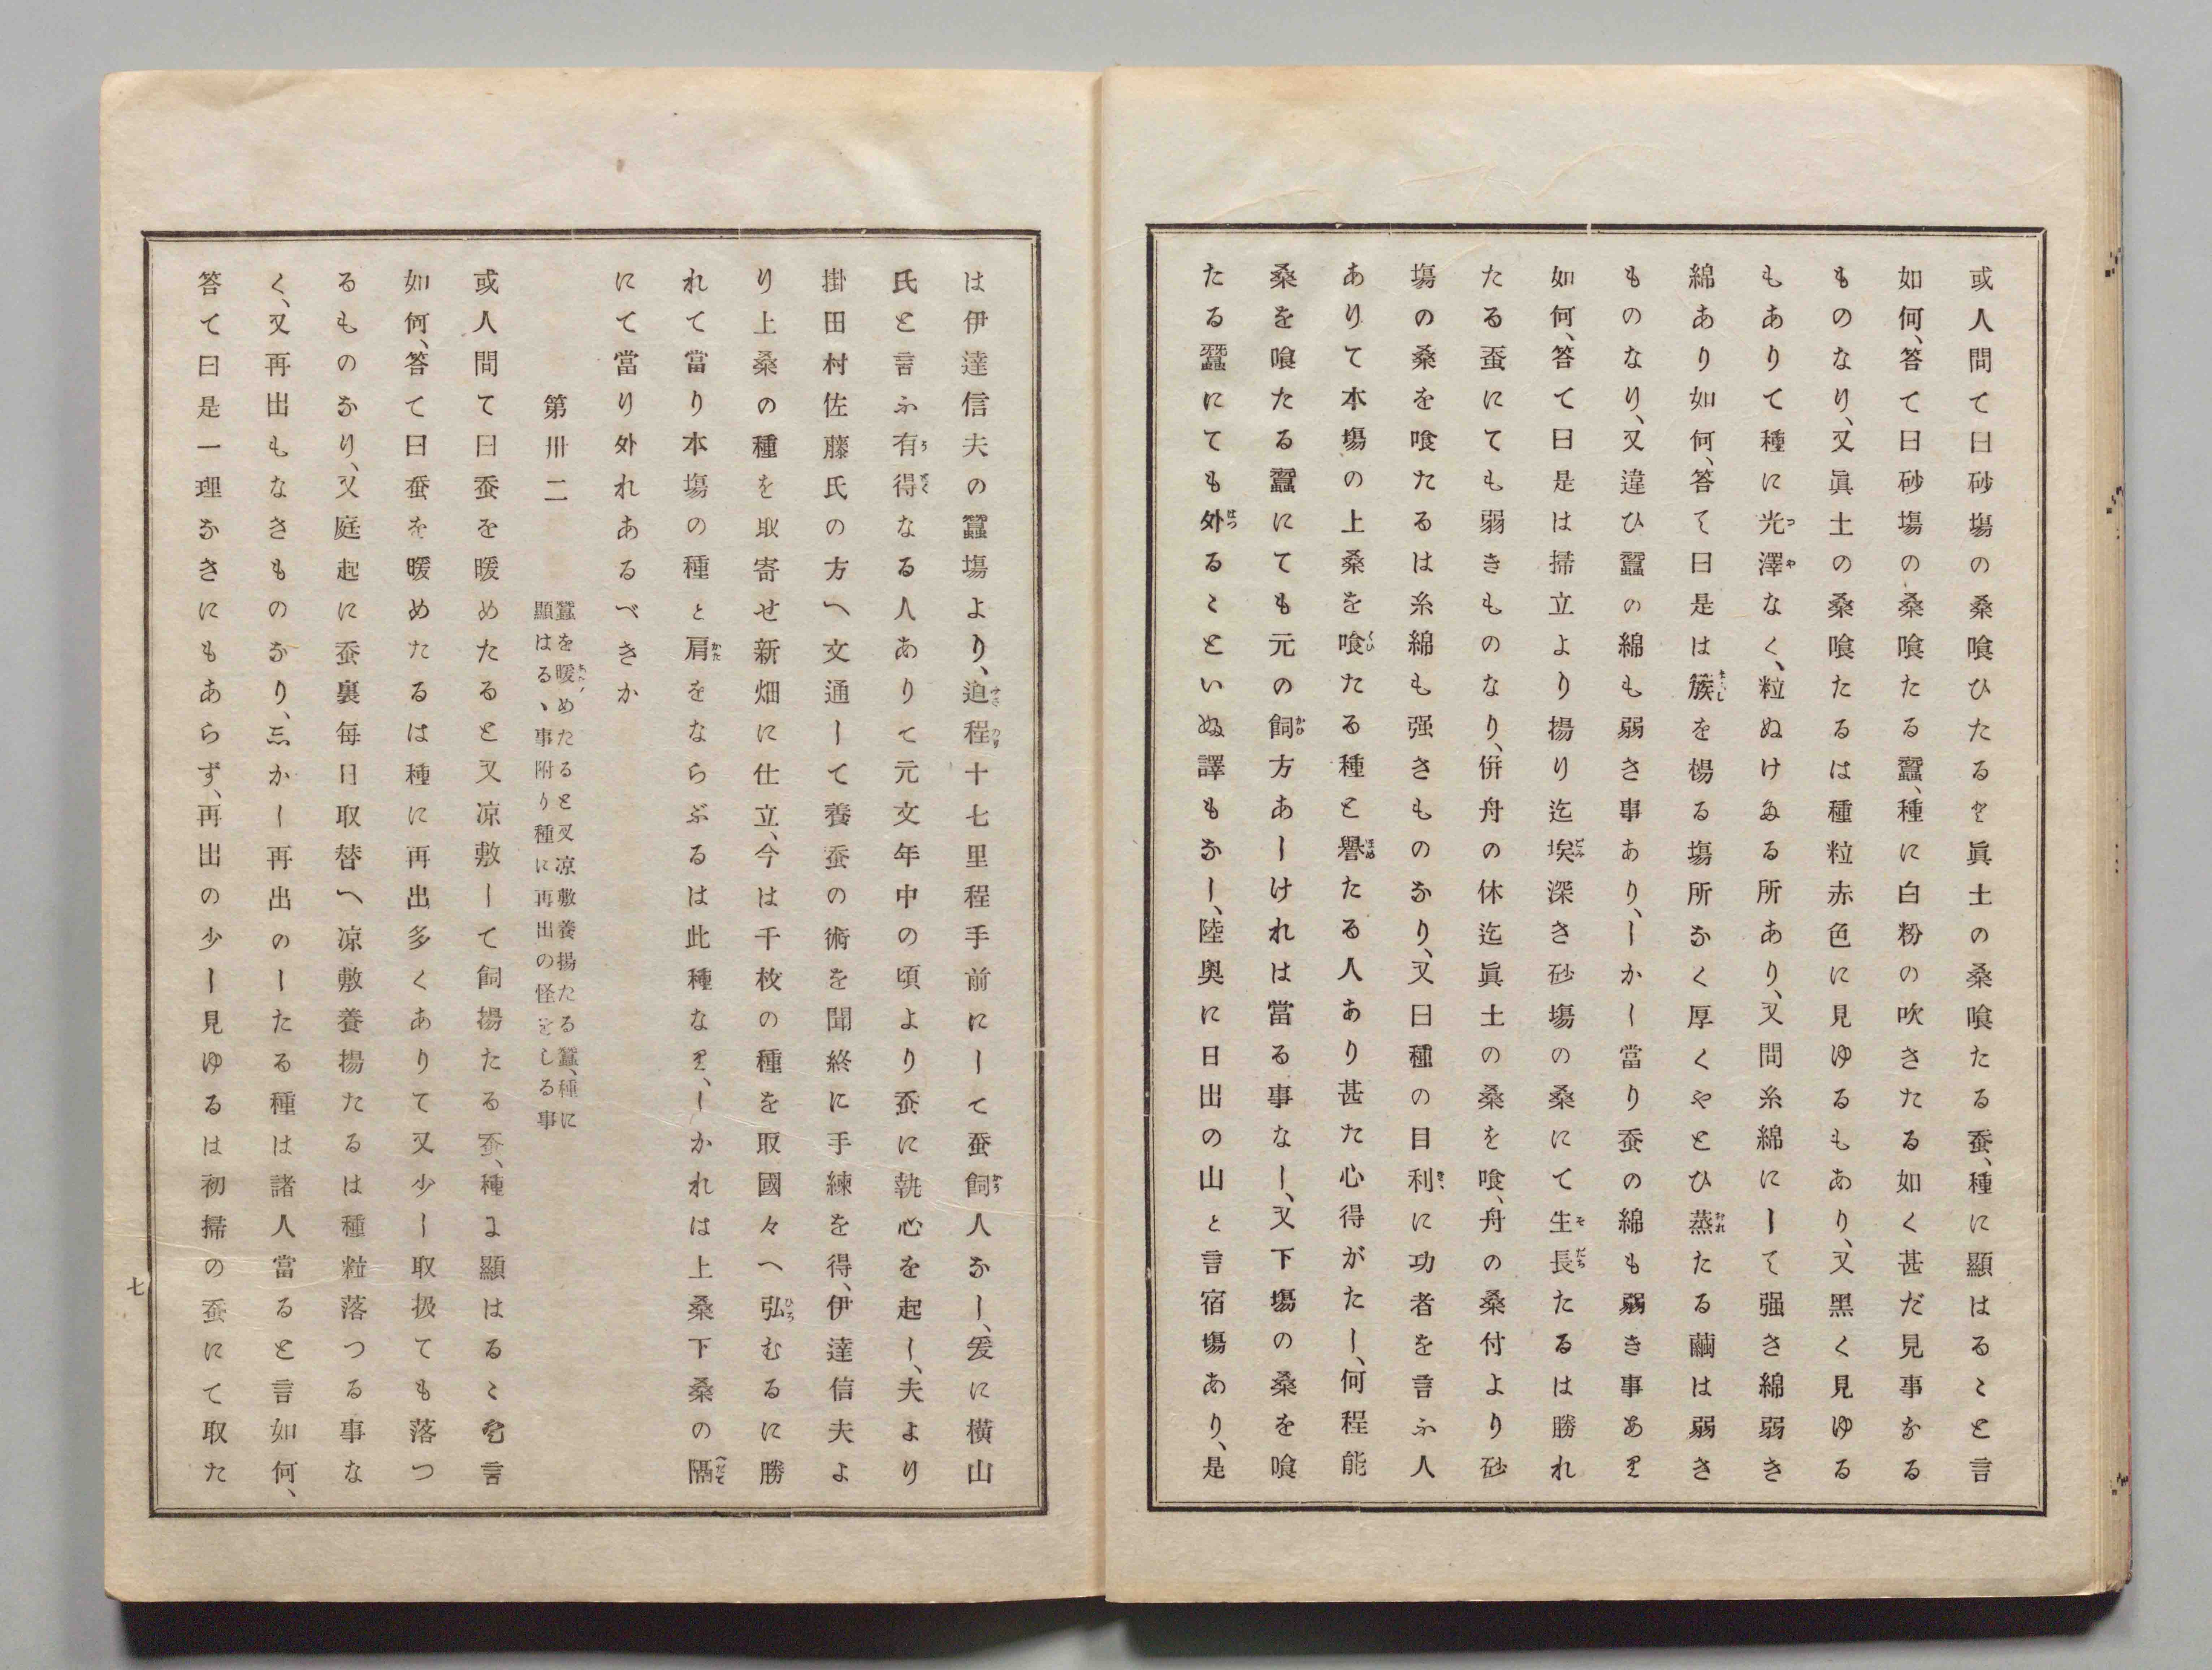 或人問て曰砂塲の桑喰ひたると眞土の桑喰たる蚕、種に顯はるゝと言
如何、答て曰砂塲の桑喰たる蠶、種に白粉の吹きたる如く甚だ見事なる
ものなり、又眞土の桑喰たるは種粒赤色に見ゆるもあり、又黑く見ゆる
もありて種に光澤なく、粒ぬけたる所あり、又問糸綿にして强き綿弱き
綿あり如何、答て曰是は簇を楊る塲所なく厚くやとひ蒸たる繭は弱き
ものなり、又違ひ蠶の綿も弱き事あり、しかし當り蚕の綿も弱き事あり
如何、答て曰是は掃立より揚り迄埃深き砂塲の桑にて生長たるは勝れ
たる蚕にても弱きものなり、併舟の休迄眞土の桑を喰、舟の桑付より砂
塲の桑を喰たるは糸綿も强きものなり、又曰種の目利に功者を言ふ人
ありて本塲の上桑を喰たる種と譽たる人あり甚た心得がたし、何程能
桑を喰たる蠶にても元の飼方あしけれは當る事なし、又下塲の桑を喰
たる蠶にても外るゝといぬ譯もなし、陸奧に日出の山と言宿塲あり、是
は伊達信夫の蠶塲より、迫程十七里程手前にして蚕飼人なし、爰に横山
氏と言ふ有得なる人ありて元文年中の頃より蚕に執心を起し、夫より
掛田村佐藤氏の方へ文通して養蚕の術を聞終に手練を得、伊達信夫よ
り上桑の種を取寄せ新畑に仕立、今は千枚の種を取國々へ弘むるに勝
れて當り本塲の種と肩をならぶるは此種なり、しかれは上桑下桑の隔
にて當り外れあるべきか
第卅二
蠶を暖めたると又凉敷養揚たる蠶、種に
顯はるゝ事附り種に再出の怪をしる事
或人問て曰蚕を暖めたると又凉敷して飼揚たる蚕、種に顯はるゝ𛂦言
如何、答て曰蚕を暖めたるは種に再出多くありて又少し取扱ても落つ
るものなり、又庭起に蚕裏每日取替へ凉敷養揚たるは種粒落つる事な
く、又再出もなきものなり、しかし再出のしたる種は諸人當ると言如何、
答て曰是一理なきにもあらず、再出の少し見ゆるは初掃の蚕にて取た
七